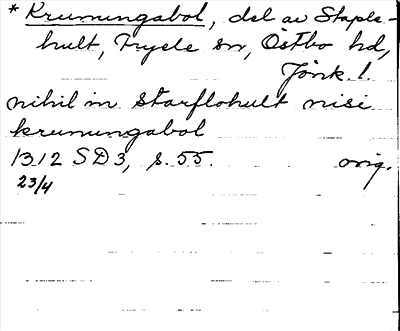 * Krumungabol, del av Stapls-
hult, Tryele sn, Östbo hd,
Jönk. l.
nihil in Starflohult nisi
krumungabol
1312 SD3, s. 55. orig.
23/4